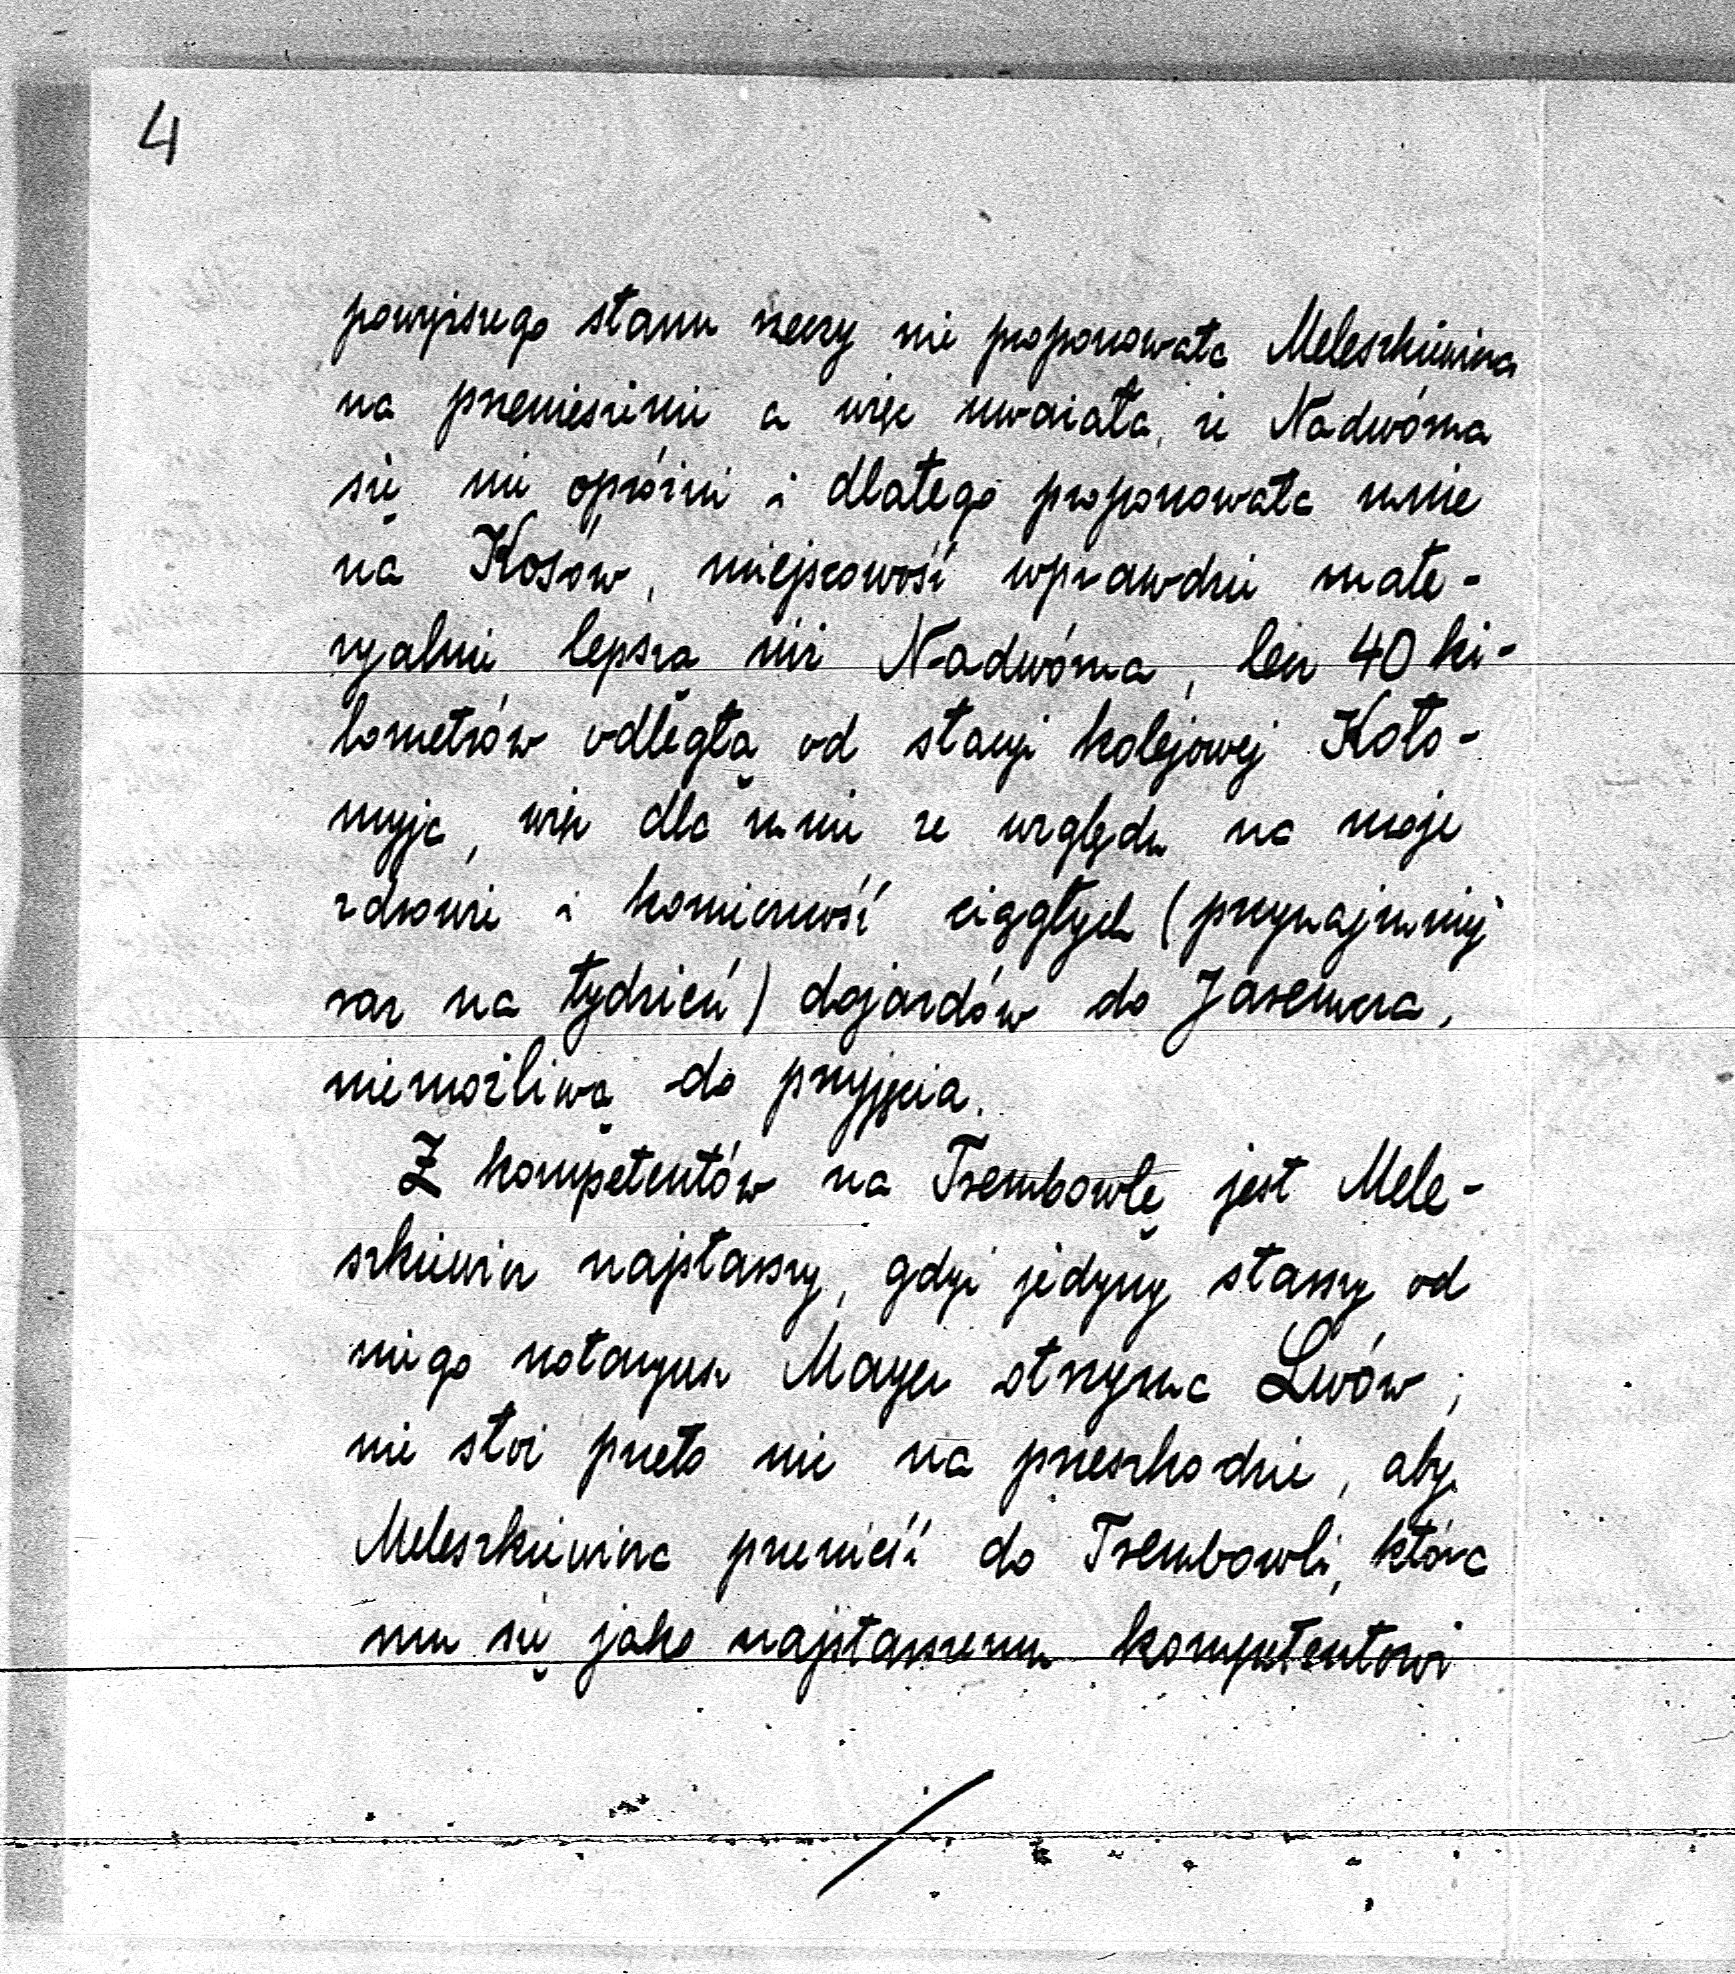 4
powyższego stanu rzeczy nie proponowała Meleszkiewicza
na przeniesienie a więc uważała, że Nadwórna
się nie opróżni i dlatego proponowała mnie
na Kosów, miejscowość wprawdzie mate-
ryalnie lepszą niż Nadwórna, lecz 40 ki-
lometrów odległą od stacyi kolejowej Koło-
myja, więc dla mnie ze względu na moje
zdrowie i konieczność ciągłych (przynajmniej
raz na tydzień) dojazdów do Jaremcza,
niemożliwą do przyjęcia.
Z kompetentów na Trembowlę jest Mele-
szkiewicz najstarszy, gdyż jedyny starszy od
niego notaryusz Mayer otrzyma Lwów;
nie stoi przeto nic na przeszkodzie, aby
Meleszkiewicza przenieść do Trembowli, która
mu się jako najstarszemu kompetentowi